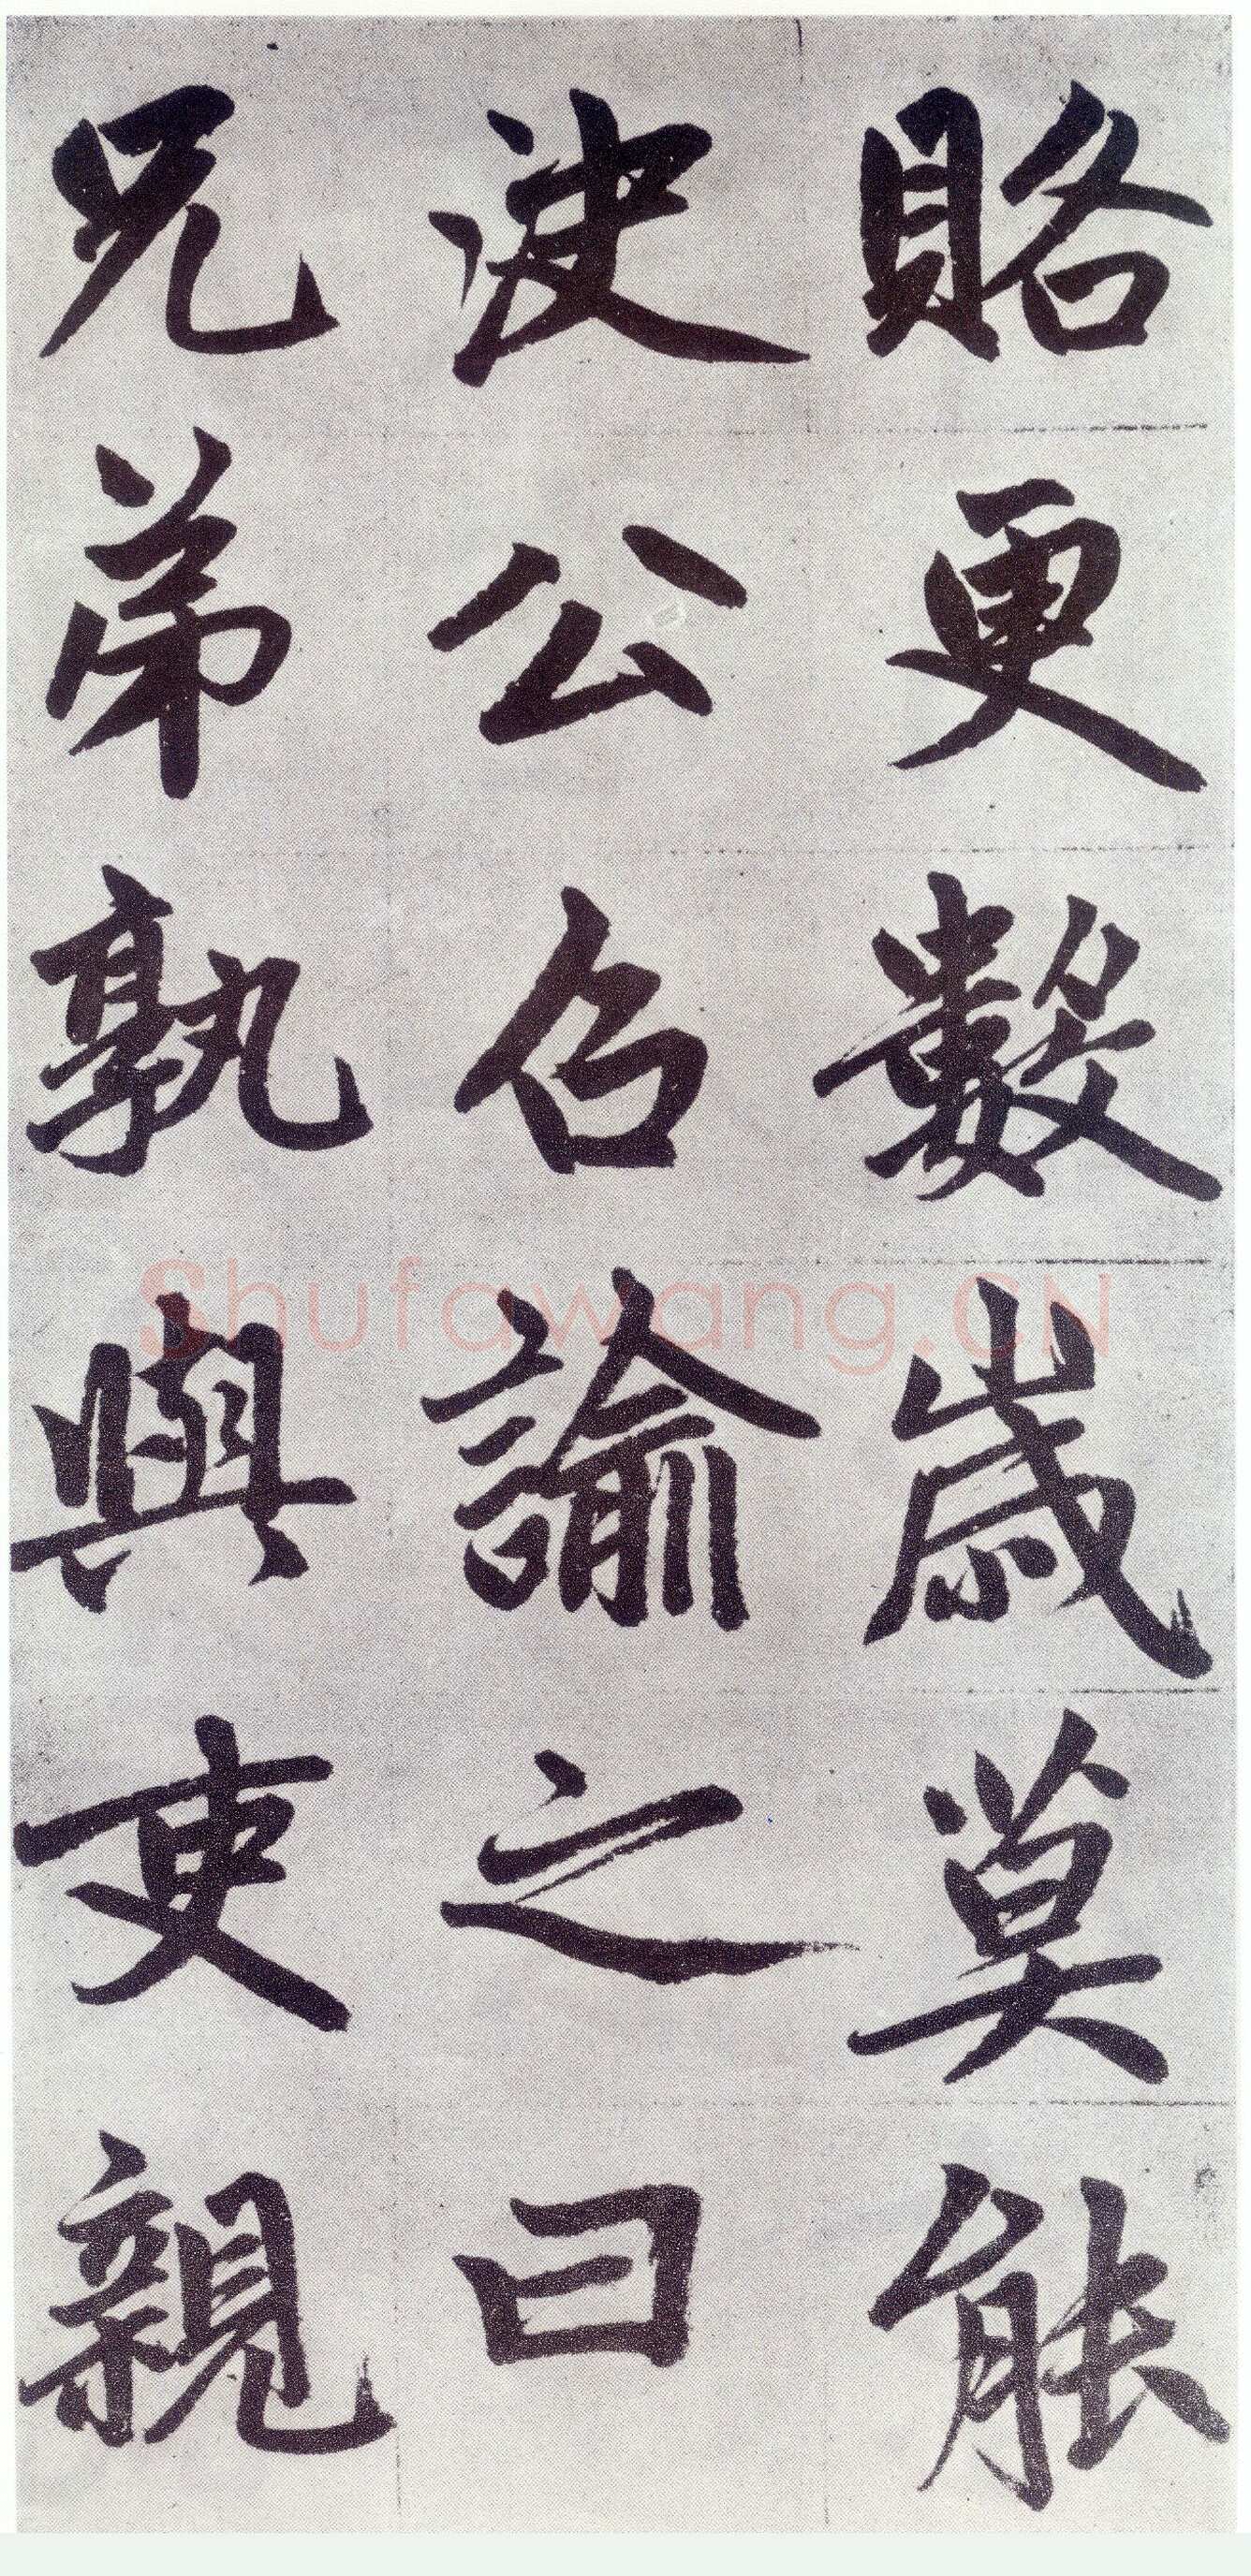 賂更數歲莫能
決公召諭之曰
兄弟孰與吏親
Shufawang.CN